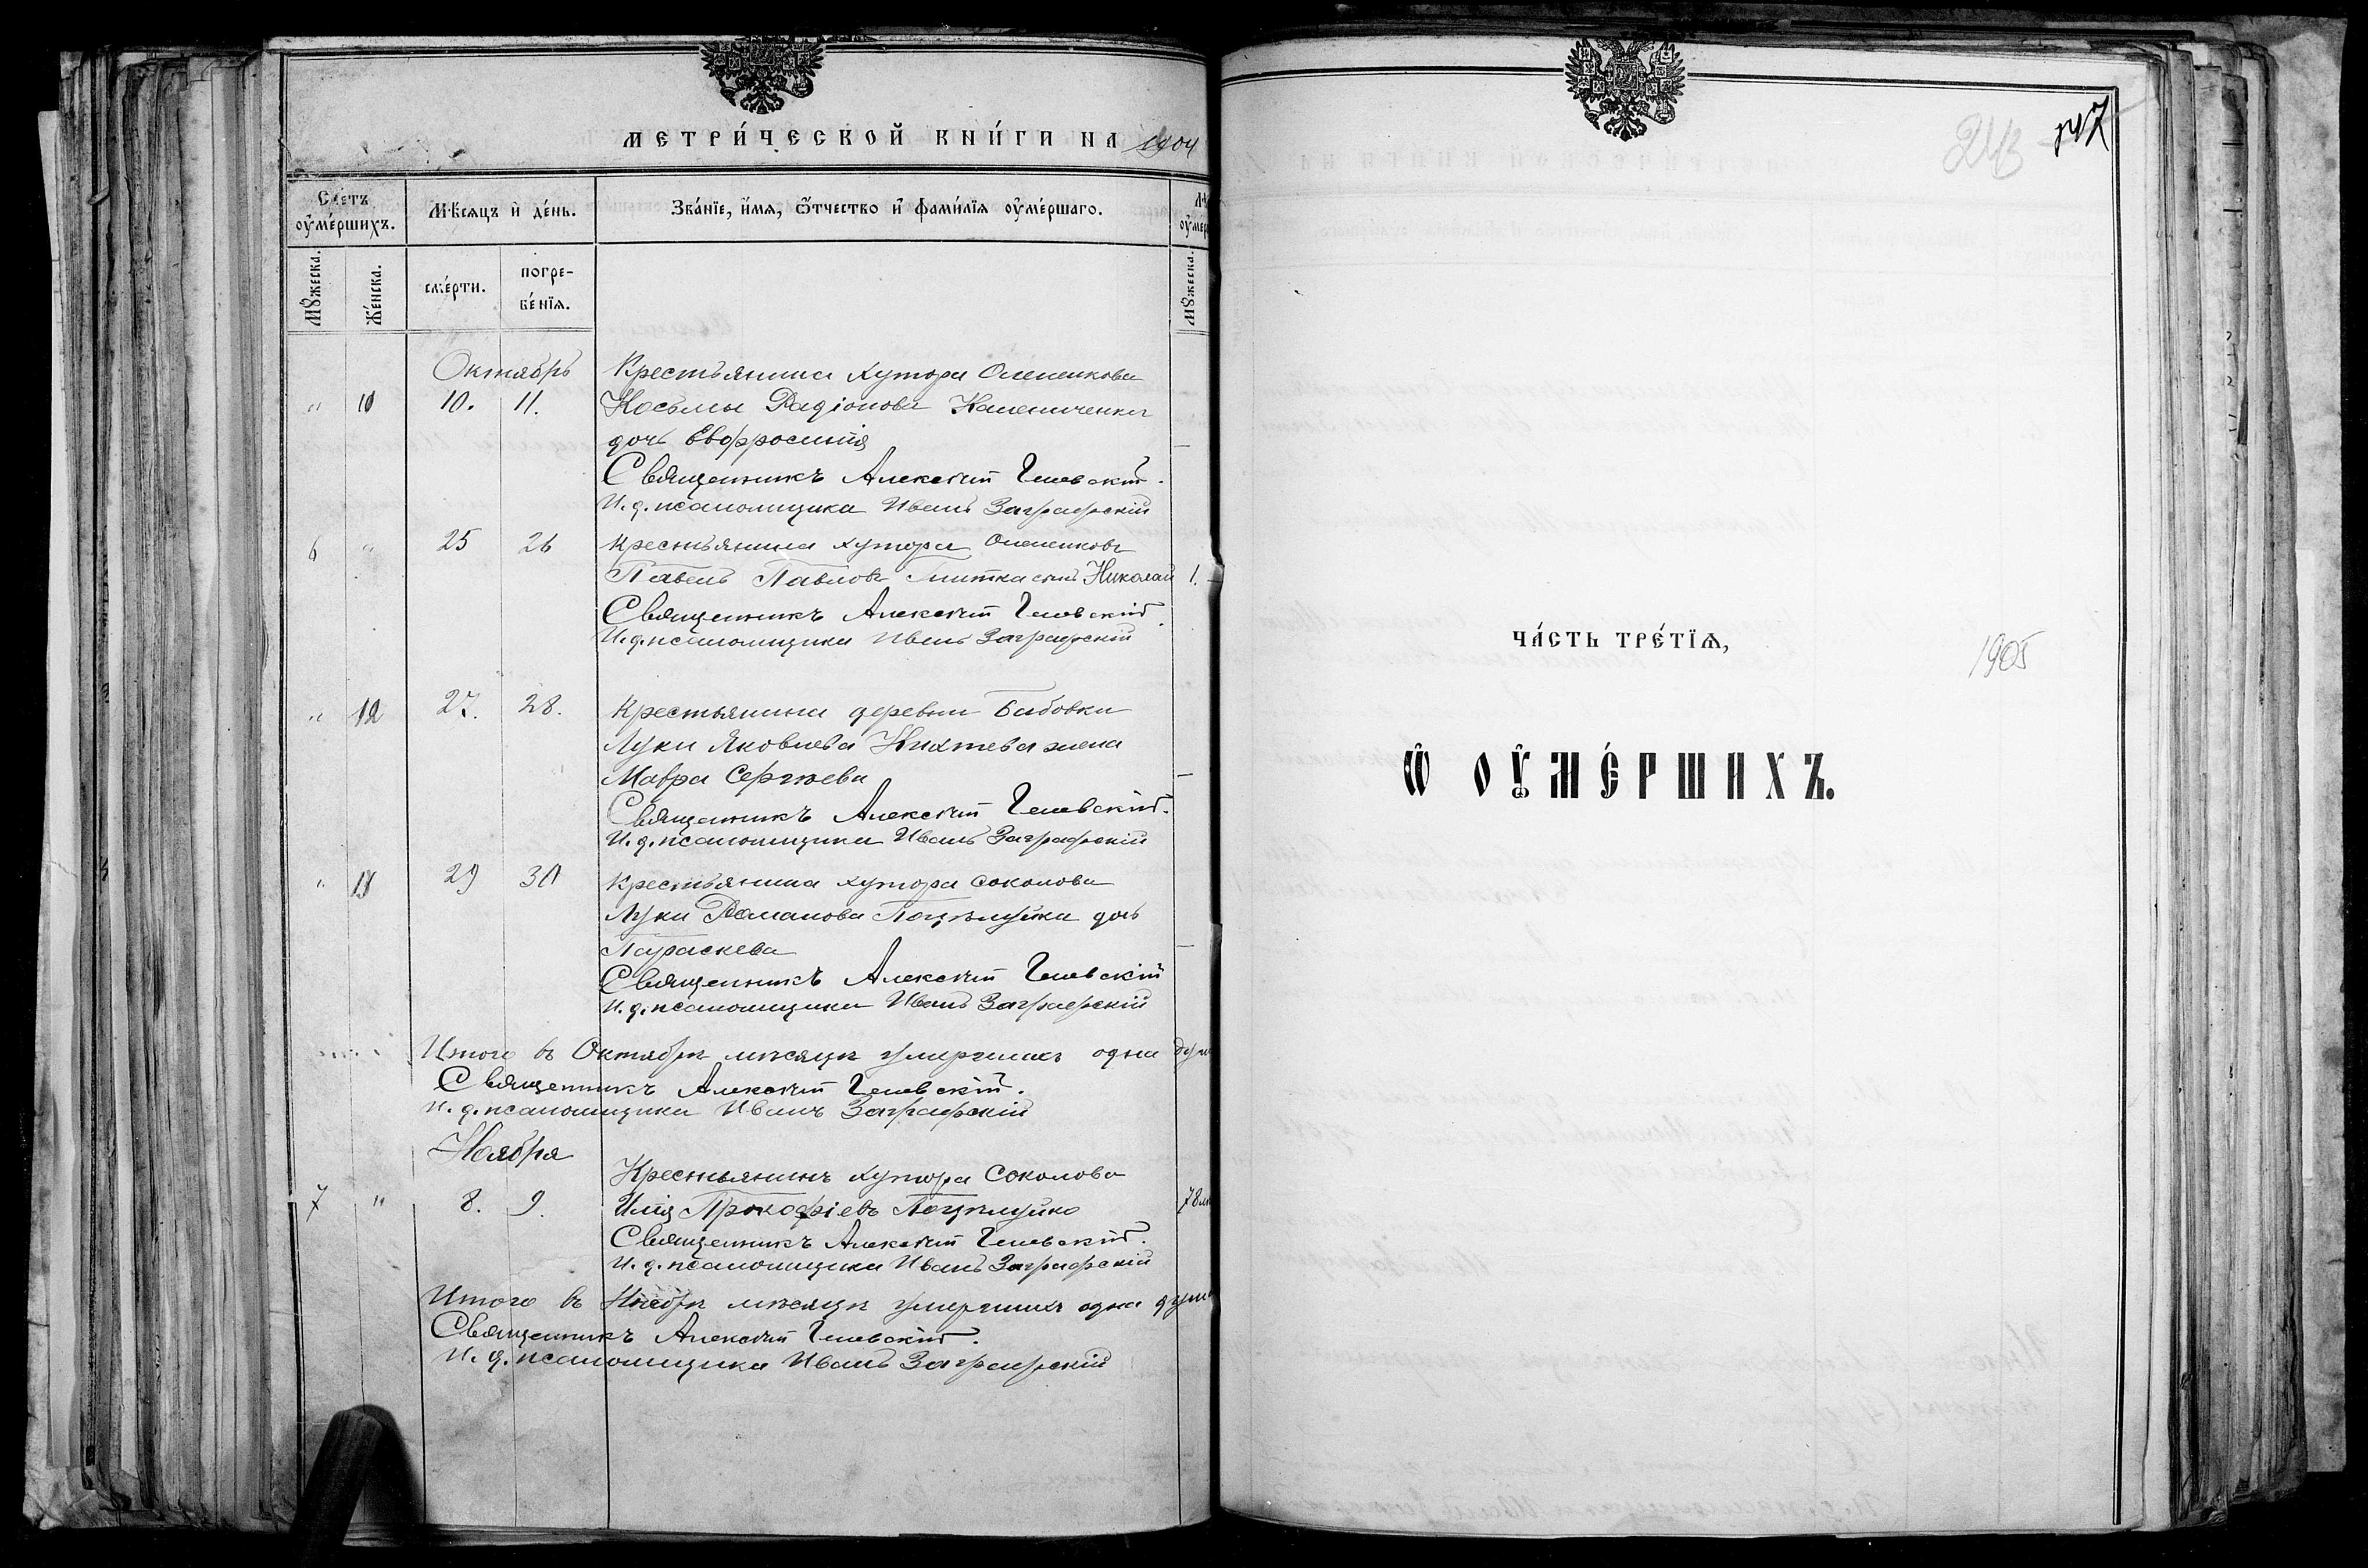 МЕТРИ́ЧЕСКОЙ КНИ́ГИ НА 1904
Сче́тъ оу҆ме́ршихъ.
Мѣ́сяцъ и҆ де́нь.
Зва́нїе, и҆́мя, ѻ҆́тчество и҆ фами́лїя оу҆ме́ршаго.
Мꙋ́жеска.
Же́нска.
сме́рти.
погре-
бе́нїя.
Мꙋ́жеска.
Октябрь
Крестьянина хутора Олененкова
" 10 10. 11. Косьмы Радіонова
дочь Евфросинія
Священникъ Алексій
И. д. псаломщика Иванъ Заграфскій
6 " 25 26 Крестьянина хутора Олененкова
Павелъ Павлова сынъ Николай 1.
Священникъ Алексій
И. д. псаломщика Иванъ Заграфскій
" 27. 28. Крестьянина деревни Бабовки
Луки Яковлева жена
Мавра Сергѣева
Священникъ Алексій
И. д. псаломщика Иванъ Заграфскій
" 29 30 Крестьянина хутора Соколова
Луки Романова Поцѣлуйка дочь
Параскева
Священникъ Алексій
И. д. псаломщика Иванъ Заграфскій
Итого въ Октябрѣ мѣсяцѣ умершихъ одна
Священникъ Алексій
И. д. псаломщика Иванъ Заграфскій
Ноября
Крестьянинъ хутора Соколова
7 " 8. 9. Илія Прокофіевъ Поцѣлуйко 78
Священникъ Алексій
И. д. псаломщика Иванъ Заграфскій
Итого въ Ноябрѣ мѣсяцѣ умершихъ одна
Священникъ Алексій
И. д. псаломщика Иванъ Заграфскій
ЧА́СТЬ ТРЕ́ТЇѦ,
1905
Ѽ ОУ҆МЕ́РШИХЪ.